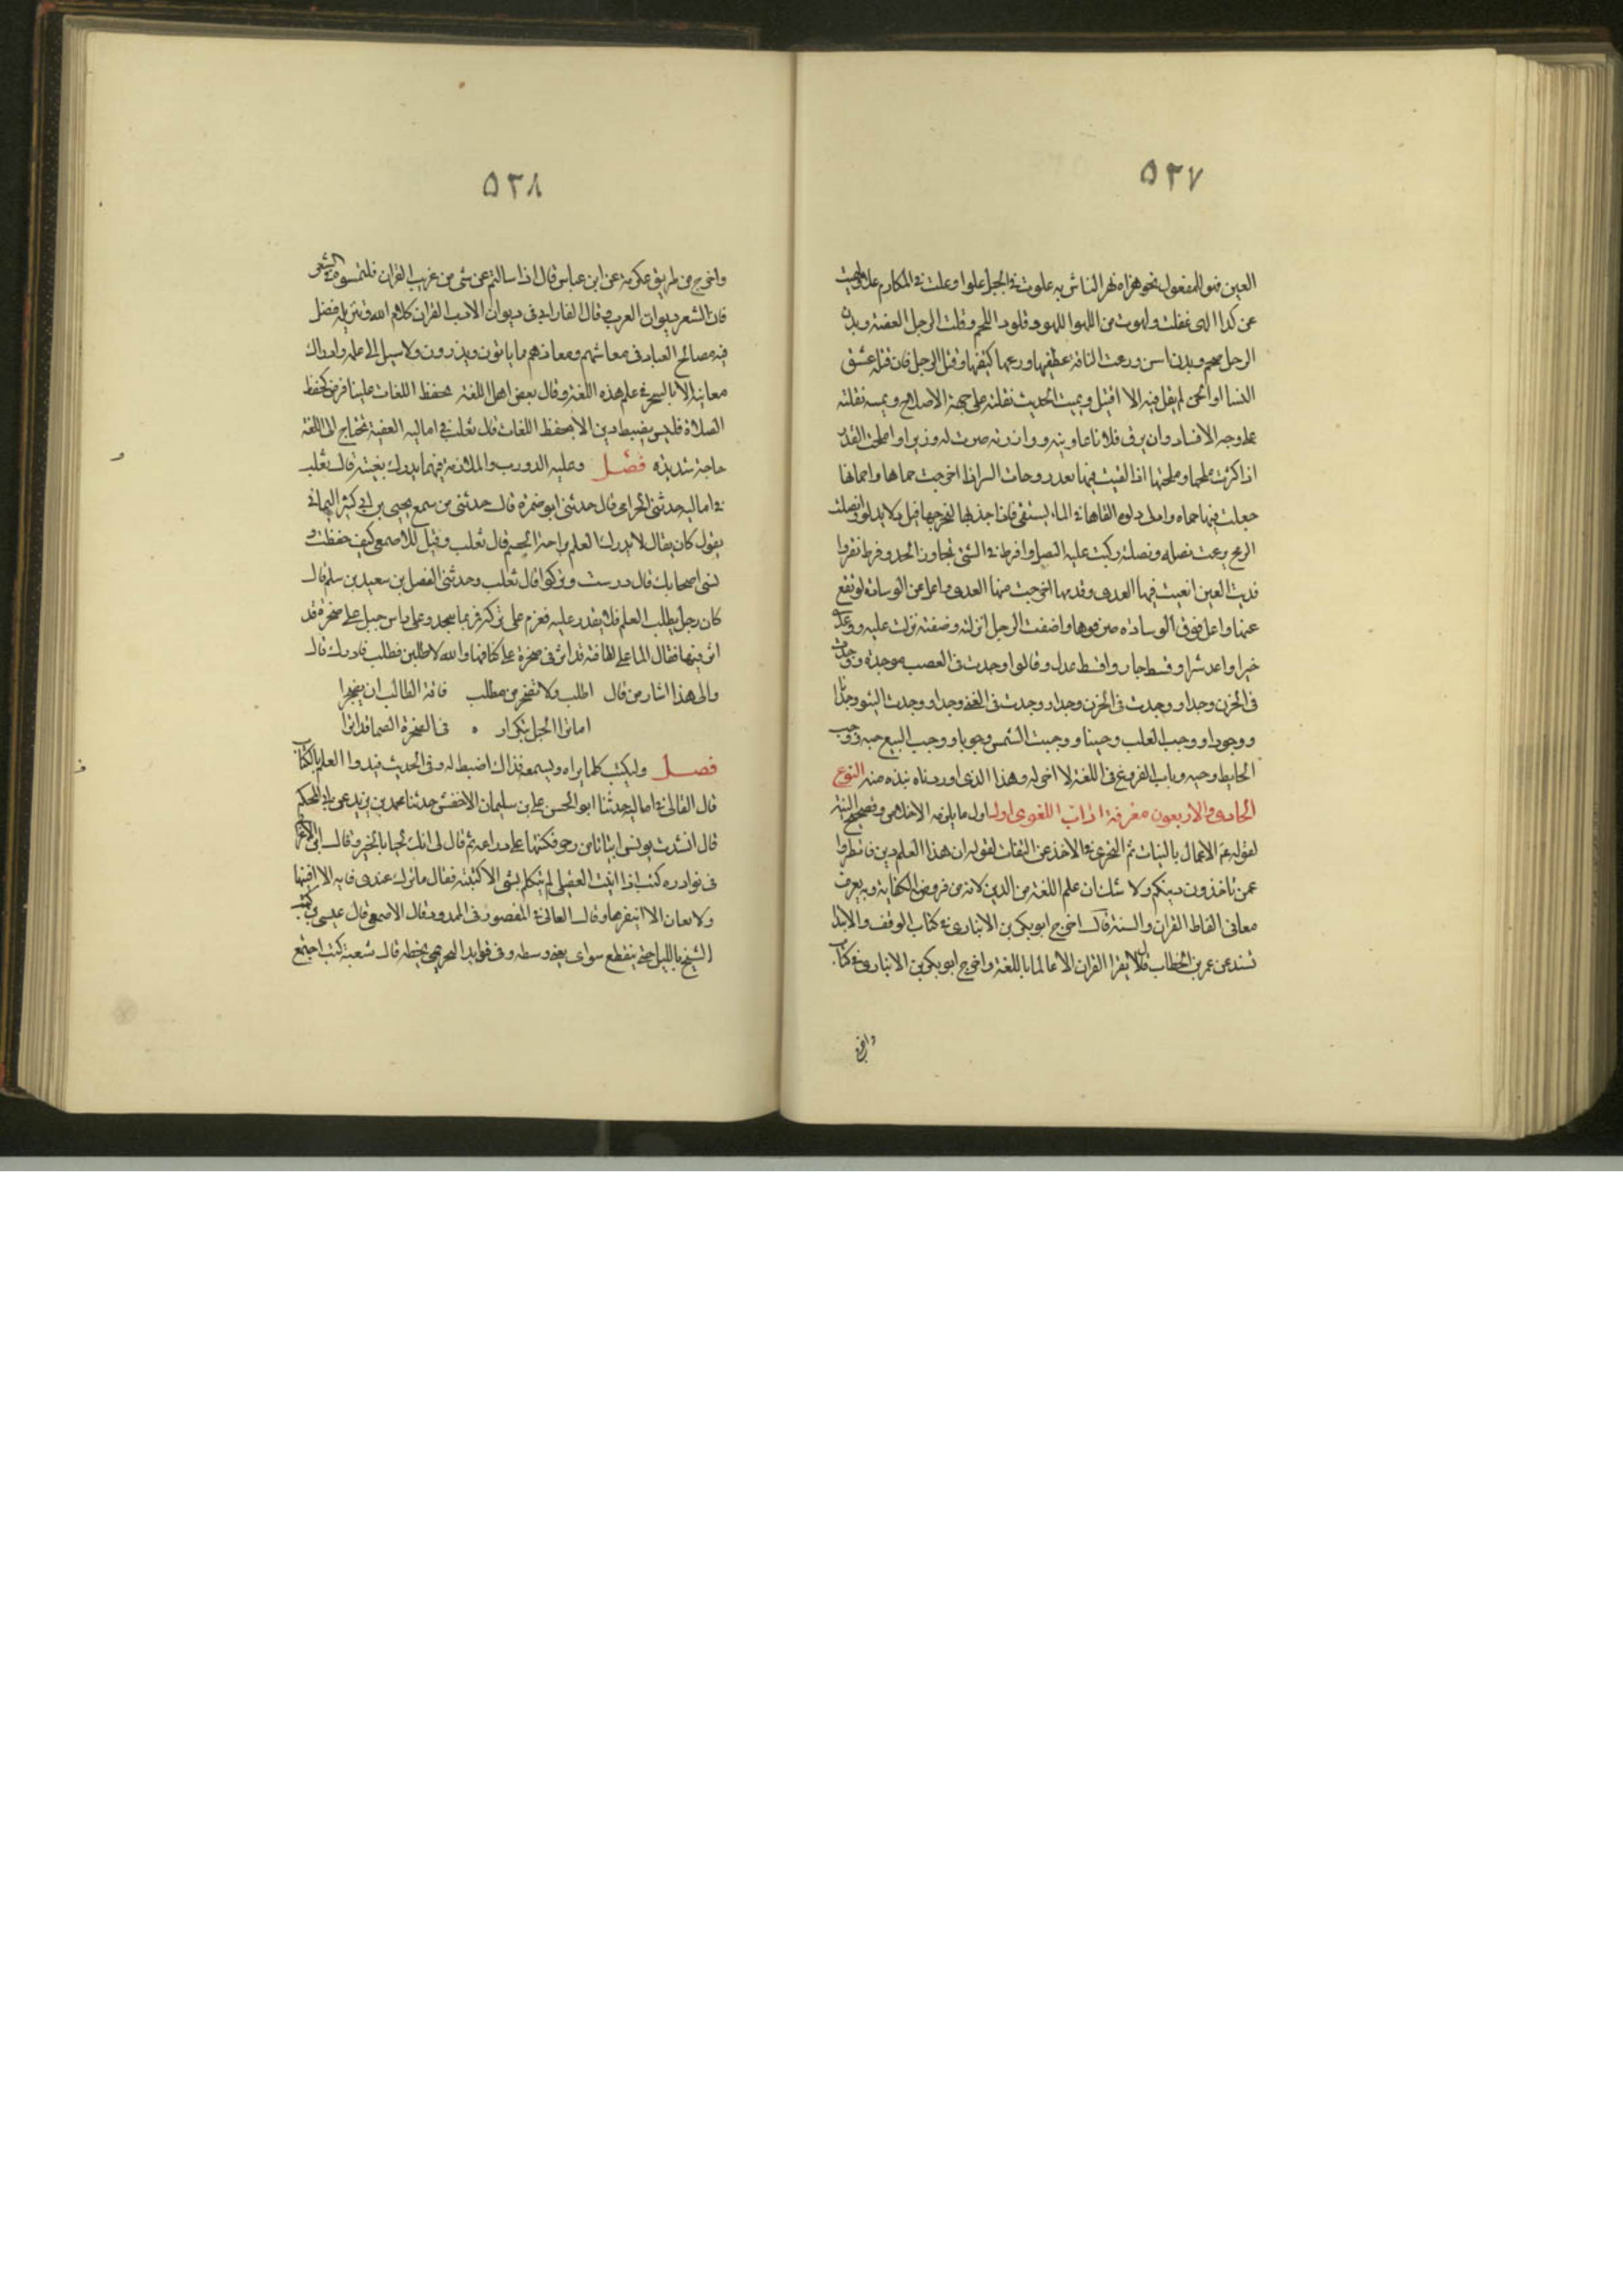 ٥٣٧
العين فهو المفعول نحو هزاه فهر الناس به علوت في الجبل علوا وعلت في المكارم علا ولهيت
عن كذا اى غفلت ولهوت من اللهو اللهو وقلوت اللحم وقلت الرجل العضته وبدن
الرجل ضخم وبدن اسن ورعت الناقة عطفها ورعها كتفها وقتل الرجل فان قتله عشق
النسا او الجن لم يقل فيه الا اقتتل ونميت الحديث نقلته على جهة الاصلاح ونميته نقلته
على وجه الافساد وان يرفى فلانا عاونته ووازرته صرت له وزيرا واملحت القدر
اذا كثرت ملحها وملحتها اذا القيت فيها بقدر وحات البير اذا اخرجت حماها واحماتها
جعلت فيها حماه وادل دلوه القاها في الماء ليستقى فاذا جذبها ليخرجها قيل دلا يدلو وانصلت
الرمح نزعت نصله ونصلته ركبت عليه النصل وافرط في الشئ تجاوز الحد وفرط نفروا
قذيت العين القيت فيها القذى وقذيتها اخرجت منها القذى واعل عن الوسادة ارتفع
عنها واعل فوق الوساده صر فوقها واضفت الرجل انزلته وضفته نزلت عليه ووعد
خيرا واعد شرا وقسط جار واقسط عدل وقالوا وجدت في الغضب موجدة ووجدت
في الحزن وجدا ووجدت في الحزن وجدا ووجدت في الغنى وجدا ووجدت الشئ وجدانا
ووجودا ووجب القلب وجيبا ووجبت الشمس وجوبا ووجب البيع جبه ووجب
الحايط وجبه وباب الفروق في اللغة لا اخر له وهذا الذى اوردناه نبذه منه النوع
الحادى والاربعون معرفة اداب اللغوى اول اول ما يلزمه الاخلاص وتصحيح النية
لقوله عم الاعمال بالنيات ثم التحرى في الاخذ عن الثقات لقوله ان هذا العلم دين فانظروا
عمن تاخذون دينكم ولا شك ان علم اللغة من الدين لانه من فروض الكفاية وبه يعرف
معانى الفاظ القران والسنة قال اخرج ابو بكر بن الانبارى في كتاب الوقف والابتدا
بسند عن عمر بن الخطاب قال لا يقرا القران الا عالما باللغة واخرج ابو بكر بن الانبارى في كتاب
واخرج
٥٣٨
واخرج من طريق عكرمة عن ابن عباس قال اذا سالتم عن شئ من غريب القران فالتمسوه في الشعر
فان الشعر ديوان العرب وقال الفارابى في ديوان الادب القران كلام الله وتنزيله فضل
فيه مصالح العباد في معاشهم ومعادهم ما ياتون ويذرون ولا سبيل الى علمه وادراك
معانيه الا بالتبحر في علم هذه اللغة وقال بعض اهل اللغة حفظ اللغات علينا فرض كحفظ
الصلاة فليس يضبط دين الا بحفظ اللغات قال ثعلب في اماليه الفقيه يحتاج الى اللغة
حاجة شديده فصل وعليه الدورب والملازمة فيهما يدرك بغيته قال ثعلب
في اماليه حدثنى الحزامى قال حدثنى ابو ضمرة قال حدثنى من سمع يحيى بن ابى كثير اليمانى
يقول كان يقال لا يدرك العلم براحة الجسم قال ثعلب وقيل للاصمعى كيف حفظت و
نسى اصحابك قال درست وتركوا قال ثعلب وحدثنى الفضل بن سعيد بن سلم قال
كان رجل يطلب العلم فلا يقدر عليه فعزم على تركه فمر بماء ينحدر على راس جبل على صخرة قد
اثر فيها فقال الماء على لطافته قد اثر في صخرة على كثافتها والله لاطلبن فطلب فادرك قال
والى هذا اشار من قال اطلب ولا تضجر من مطلب فافة الطالب ان يضجرا
اما ترى الحبل بتكرار ه في الصخرة الصما قد اثرا
فصل وليكتب كلما يراه ويسمعه فذاك اضبط له وفى الحديث قيدوا العلم بالكتاب
قال القالى في اماليه حدثنا ابو الحسن على بن سليمان الاخفش حدثنا محمد بن يزيد عن ابى المحلم
قال انشدت يونس ابياتا من رجز فكتبها على ذراعه ثم قال لى انك لجياء بالخير وقال ابن الاعرا
فى نوادره كنت اذا اتيت العقيلى لم يتكلم بشئ الا كتبته فقال ما ترك عندى قابه الا اقتبها
ولا نقارة الا انتقرها وقال القالى في المقصور والممدود قال الاصمعى قال عيسى بن عمر كتب
الشيخ بالليل حتى ينقطع سوائى يعنى وسطه وفى فوايد النجيرمى بخطه قال شعبة كنت اجتمع